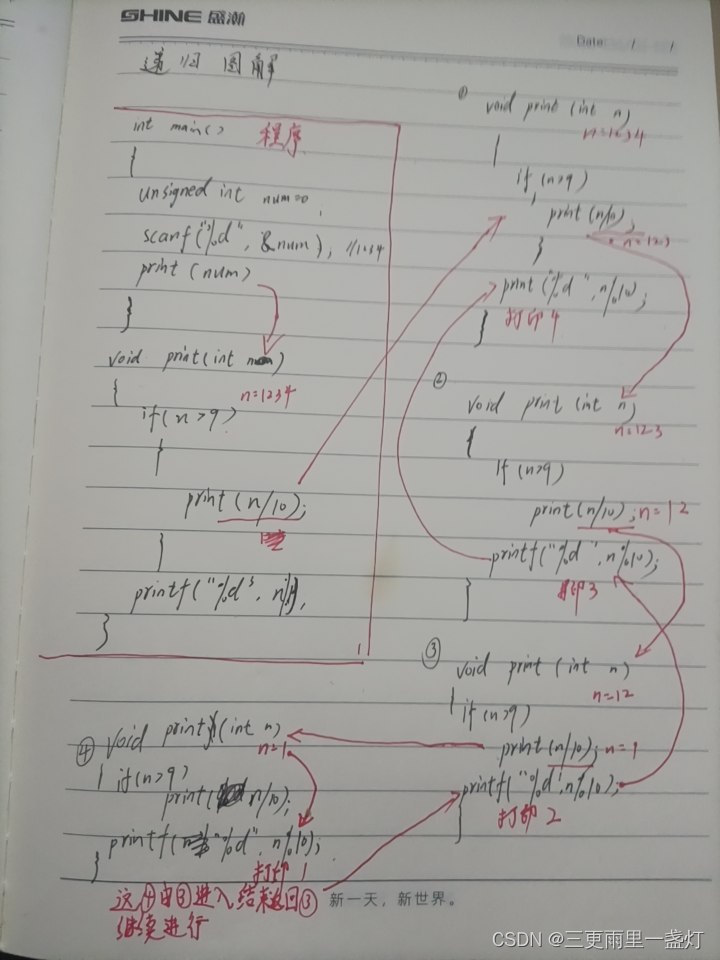 SHINE 盛瀚
Date: / /
递归 图解
int main() 程序
{
unsigned int num=0;
scanf("%d", &num); //1234
print (num)
}
void print(int
n=1234
{
if(n>9)
{
print (n/10);
}
printf("%d",
}
①
void print (int n)
n=1234
{
if (n>9)
{
print (n/10);
n=123
}
print("%d", n%10);
} 打印4
②
void print (int n)
n=123
{
if (n>9)
print(n/10); n=12
printf("%d", n%10);
} 打印3
③
void print (int n)
n=12
{ if(n>9)
print(n/10); n=1
printf("%d",n%10);
打印2
}
④ void print (int n)
n=1
{ if(n>9)
print( n/10);
printf( "%d", n%10);
} 打印 1
这④由③进入结束返回③
继续进行
新一天，新世界。
CSDN @三更雨里一盏灯